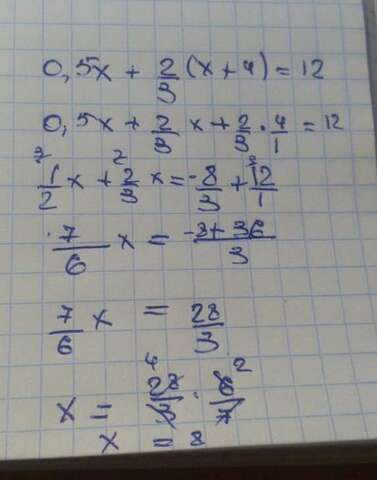 0,5x + 2/3 (x + 4) = 12
0,5x + 2/3 x + 2/3 · 4/1 = 12
3 1/2 x + 2 2/3 x = -8/3 + 3 12/1
7/6 x = -8 + 36/3
7/6 x = 28/3
x = 4 28/3 · 6/7 2
x = 8